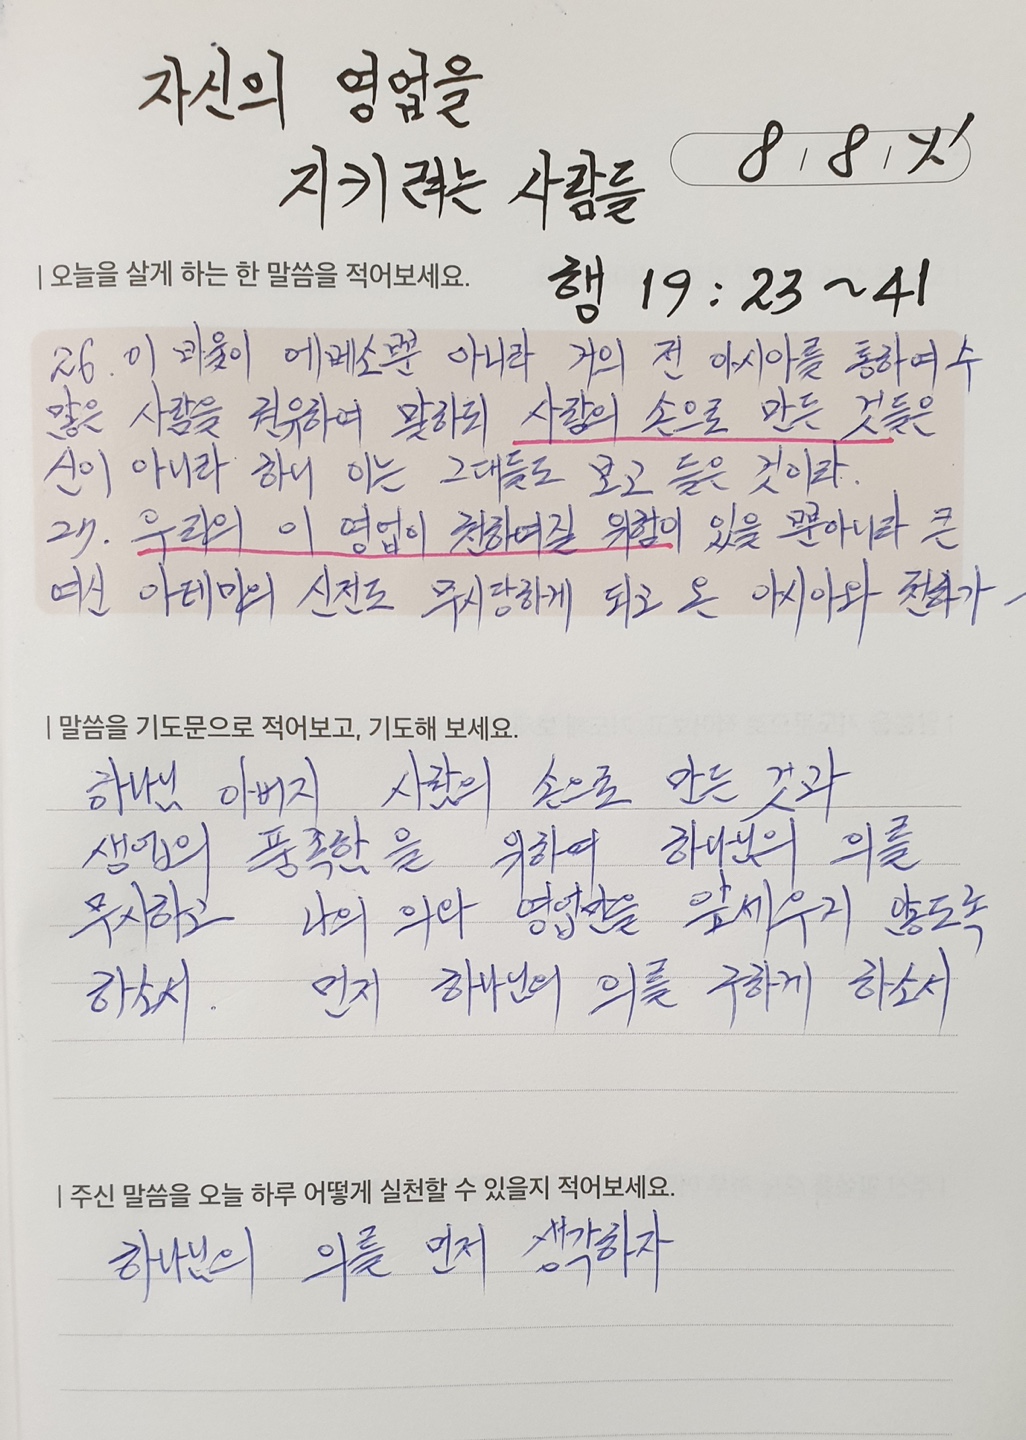 자신의 영업을
지키려는 사람들
8 / 8 /
행 19 : 23 ~ 41
| 오늘을 살게 하는 한 말씀을 적어보세요.
26. 이 바울이 에베소뿐 아니라 거의 전 아시아를 통하여 수
많은 사람을 권유하여 말하되 사람의 손으로 만든 것들은
신이 아니라 하니 이는 그대들도 보고 들은 것이라.
27. 우리의 이 영업이 천하여질 위험이 있을 뿐아니라 큰
여신 아데미의 신전도 무시당하게 되고 온 아시아와 천하가 ~
| 말씀을 기도문으로 적어보고, 기도해 보세요.
하나님 아버지 사람의 손으로 만든 것과
생업의 풍족함을 위하여 하나님의 의를
무시하고 나의 의와 영업만을 앞세우지 않도록
하소서. 먼저 하나님의 의를 구하게 하소서
| 주신 말씀을 오늘 하루 어떻게 실천할 수 있을지 적어보세요.
하나님의 의를 먼저 생각하자